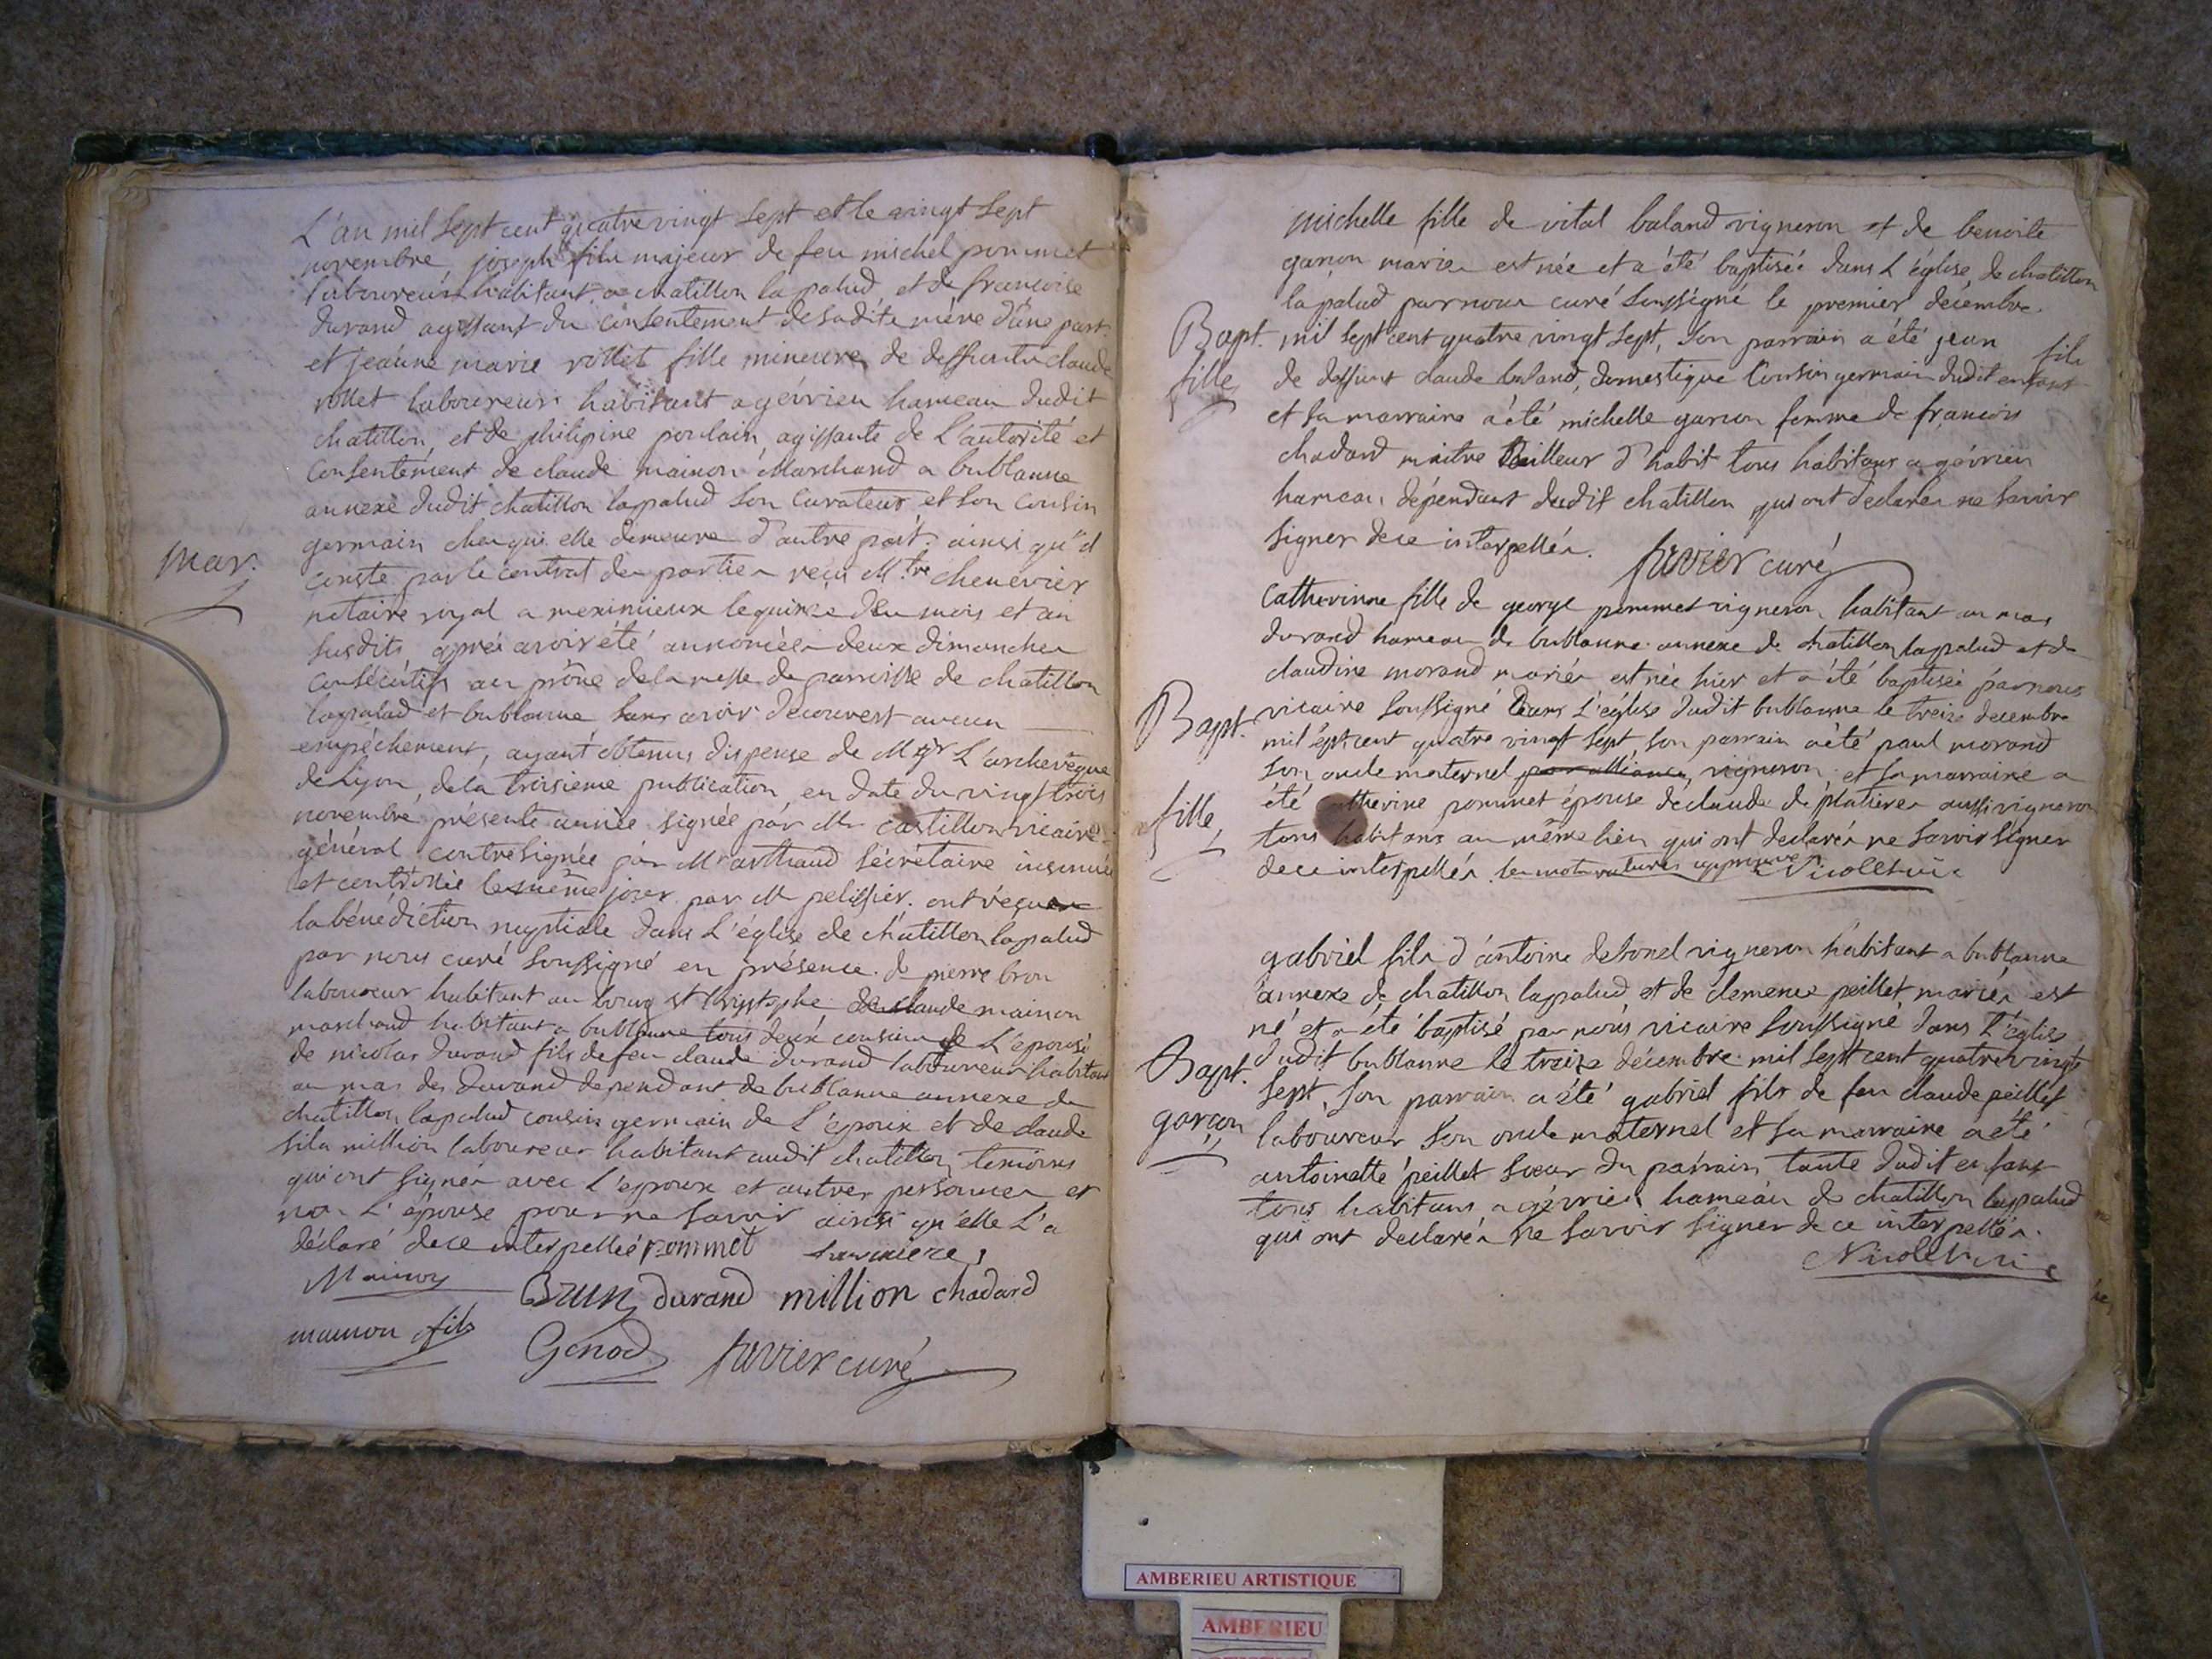 L'an mil sept cent quatre vingt sept et le vingt sept
novembre, joseph fils majeur de feu michel pommet
laboureur habitant a chatillon la palud et de francoise
durand agissant du consentement de sadite mère d'une part
et jeanne marie rollet fille mineure de deffunt claude
rollet laboureur habitant a gévrieu hameau dudit
chatillon, et de philipine poulain, agissante de l'autorité et
consentement de claude mainon Marchand a bublanne
annexe dudit chatillon lapalud son curateur et son cousin
germain chez qui elle demeure d'autre part; ainsi qu'il
conste par le contrat des parties reçu Mtre chenevier
Mar.
notaire royal a meximieux le quinze des mois et an
susdits après avoir été annoncés deux dimanches
consécutifs au prône de la messe de parroisse de chatillon
lapalud et bublanne sans avoir decouvert aucun
empêchement, ayant obtenus dispense de Mgr L'archevêque
de Lyon, de la troisieme publication en date du vingt trois
novembre présente année signée par Mr castillon vicaire
général contresignée par Mr arthaud sécrétaire insinuée
et controllée le même jour par Mr pelissier. ont reçu
la bénédiction nuptiale dans L'église de chatillon lapalud
par nous curé soussigné en présence de pierre brun
laboureur habitant au bourg st Christophe, de claude mainon
marchand habitant a bublanne tous deux cousins de L'épouse
de nicolas durand fils de feu claude durand laboureur habitant
au mas des durand dependant de bublanne annexe de
chatillon lapalud cousin germain de L'époux et de claude
fils million laboureur habitant audit chatillon, temoins
qui ont signés avec L'epoux et autres personnes et
non L'épouse pour ne savoir ainsi qu'elle L'a
déclaré de ce interpellée pommet
Mainon Brun durand million chadard
mainon fils Genod favier curé
michelle fille de vital baland vigneron et de benoite
garçon mariés est née et a été baptisée dans L'église de chatillon
la palud par nous curé soussigné le premier décembre
Bapt. mil sept cent quatre vingt sept, son parrain a été jean fils
fille de deffunt claude baland, domestique Cousin germain dudit enfant
et sa marraine a été michelle garcon femme de francois
chadard maitre tailleur d'habit tous habitans a gévrieu
hameau dépendant dudit chatillon qui ont declarés ne savoir
signer de ce interpellés. favier curé
Catherinne fille de george pommet vigneron habitant au mas
durand hameau de bublanne annexe de chatillon lapalud et de
claudine morand mariés est née hier et a été baptisée par nous
Bapt. vicaire soussigné dans L'église dudit bublanne le treize decembre
mil sept cent quatre vingt sept, son parrain a été paul morand
son oncle maternel par alliance, vigneron, et sa marraine a
fille été catherine pommet épouse de claude de platieres aussi vigneron
tous habitans au même lieu qui ont declarés ne savoir signer
de ce interpellés. les mots raturés approuvés
gabriel fils d'antoine debonel vigneron habitant a bublanne
annexe de chatillon lapalud et de clemence peillet mariés est
né et a été baptisé par nous vicaire soussigné dans L'église
Bapt. dudit bublanne le treize décembre mil sept cent quatre vingt
sept, son parrain a été gabriel fils de feu claude peillet
garçon laboureur son oncle maternel et sa marraine a été
antoinette peillet soeur du parrain, tante dudit enfant
tous habitans a gévrieu hameau de chatillon lapalud
qui ont declarés ne savoir signer de ce interpellés.
AMBERIEU ARTISTIQUE
AMBERIEU